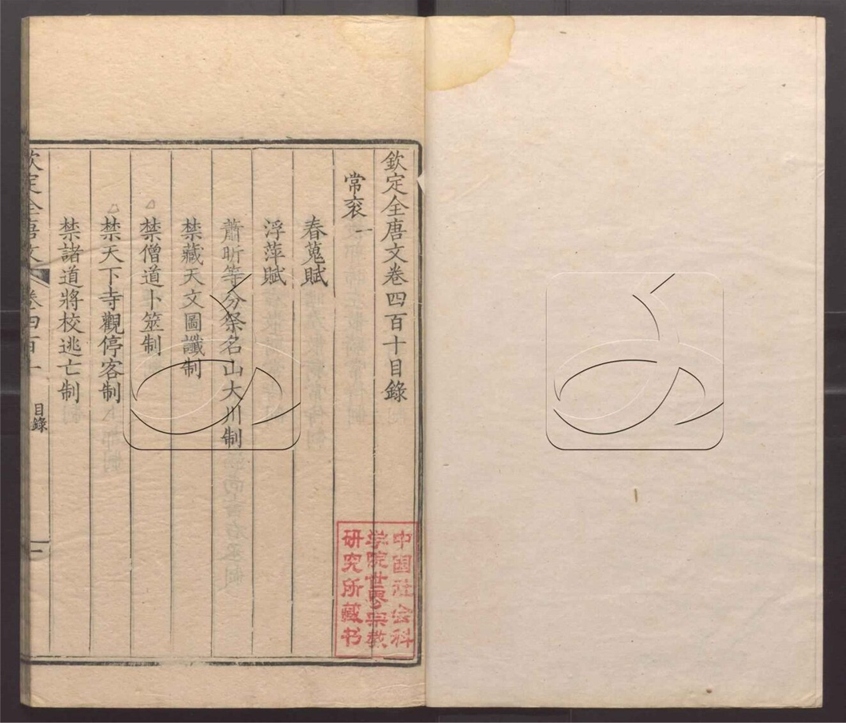 欽定全唐文卷四百十目錄
常袞一
春蒐賦
浮萍賦
蕭昕等分祭名山大川制
禁藏天文圖讖制
禁僧道卜筮制
禁天下寺觀停客制
禁諸道將校逃亡制
欽定全唐文 卷四百十 目錄 一
中國社会科
学院世界宗教
研究所藏书